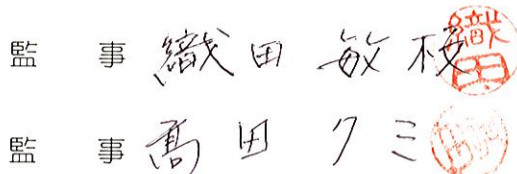 監事 織田敏枝 織田
監事 髙田クミ